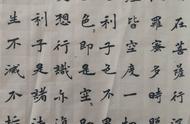 在菩薩行
羅蜜多時
皆空度一
利子色不
色即是空
想行識亦
利子是諸法
生不滅不